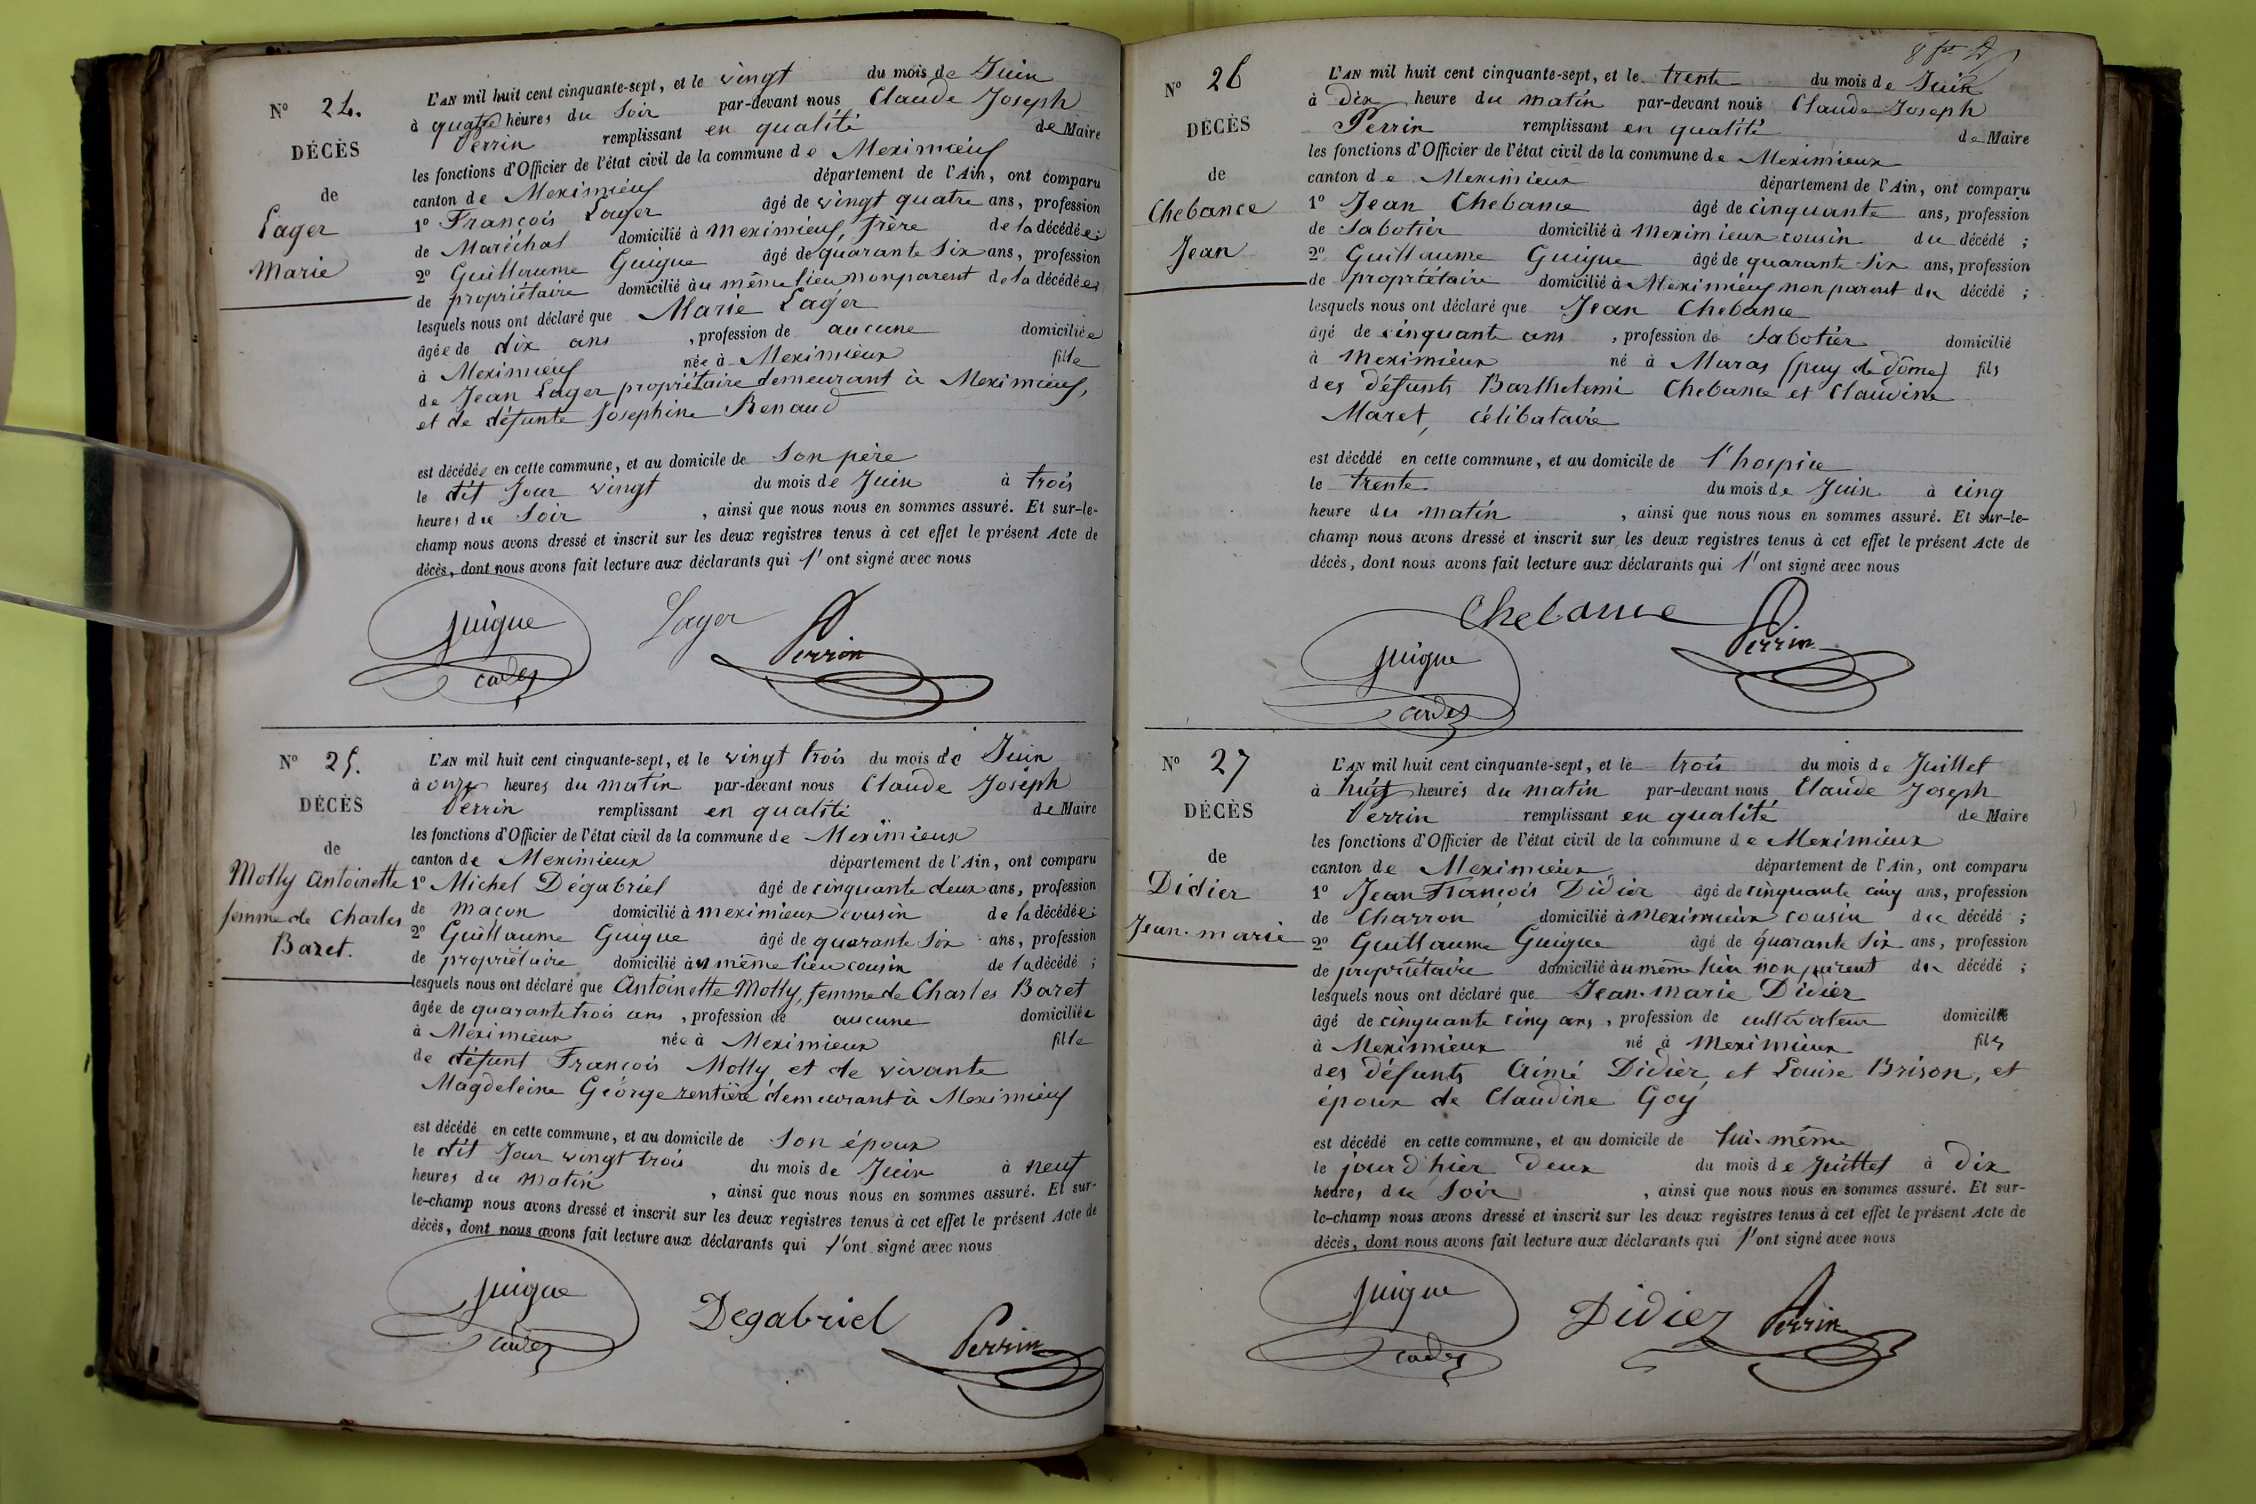 N° 24.
DÉCÈS
de
Lager
Marie
L'AN mil huit cent cinquante-sept, et le vingt du mois de Juin
à quatre heures du Soir par-devant nous Claude Joseph
Perrin remplissant en qualité de Maire
les fonctions d'Officier de l'état civil de la commune de Meximieux
canton de Meximieux département de l'Ain, ont comparu
1° François Lager âgé de vingt quatre ans, profession
de Maréchal domicilié à meximieux frère de la décédée;
2° Guillaume Guigue âgé de quarante Six ans, profession
de propriétaire domicilié au même lieu non parent de la décédée;
lesquels nous ont déclaré que Marie Lager
âgée de dix ans, profession de aucune domiciliée
à Meximieux née à Meximieux fille
de Jean Lager propriétaire demeurant à Meximieux,
et de défunte Joséphine Renaud
est décédée en cette commune, et au domicile de Son père
le dit Jour vingt du mois de Juin à trois
heures du Soir, ainsi que nous nous en sommes assuré. Et sur-le-
champ nous avons dressé et inscrit sur les deux registres tenus à cet effet le présent Acte de
décès, dont nous avons fait lecture aux déclarants qui l'ont signé avec nous
guigue Lager Perrin
cadet
N° 25.
DÉCÈS
de
Molly Antoinette
femme de Charles
Baret.
L'AN mil huit cent cinquante-sept, et le vingt trois du mois de Juin
à onze heures du matin par-devant nous Claude Joseph
Perrin remplissant en qualité de Maire
les fonctions d'Officier de l'état civil de la commune de Meximieux
canton de Meximieux département de l'Ain, ont comparu
1° Michel Dégabriel âgé de cinquante deux ans, profession
de maçon domicilié à meximieux cousin de la décédée;
2° Guillaume Guigue âgé de quarante Six ans, profession
de propriétaire domicilié au même lieu cousin de la décédé;
lesquels nous ont déclaré que Antoinette Molly, femme de Charles Baret
âgée de quarante trois ans, profession de aucune domiciliée
à Meximieux née à Meximieux fille
de défunt François Molly et de vivante
Magdeleine George rentière demeurant à Meximieux
est décédé en cette commune, et au domicile de Son époux
le dit Jour vingt trois du mois de Juin à neuf
heures du matin, ainsi que nous nous en sommes assuré. Et sur-
le-champ nous avons dressé et inscrit sur les deux registres tenus à cet effet le présent Acte de
décès, dont nous avons fait lecture aux déclarants qui l'ont signé avec nous
guigue Degabriel Perrin
cadet
N° 26
DÉCÈS
de
Chebance
Jean
L'AN mil huit cent cinquante-sept, et le trente du mois de Juin
à dix heure du matin par-devant nous Claude Joseph
Perrin remplissant en qualité de Maire
les fonctions d'Officier de l'état civil de la commune de Meximieux
canton de Meximieux département de l'Ain, ont comparu
1° Jean Chebance âgé de cinquante ans, profession
de Sabotier domicilié à meximieux cousin du décédé;
2° Guillaume Guigue âgé de quarante Six ans, profession
de propriétaire domicilié à Meximieux non parent du décédé;
lesquels nous ont déclaré que Jean Chebance
âgé de cinquante ans, profession de Sabotier domicilié
à meximieux né à Maras (puy de Dôme) fils
des défunts Barthelemi Chebance et Claudine
Maret, célibataire
est décédé en cette commune, et au domicile de l'hospice
le trente du mois de Juin à cinq
heure du matin, ainsi que nous nous en sommes assuré. Et sur-le-
champ nous avons dressé et inscrit sur les deux registres tenus à cet effet le présent Acte de
décès, dont nous avons fait lecture aux déclarants qui l'ont signé avec nous
Chebance Perrin
guigue
cadet
N° 27
DÉCÈS
de
Didier
Jean-marie
L'AN mil huit cent cinquante-sept, et le trois du mois de Juillet
à huit heures du matin par-devant nous Claude Joseph
Perrin remplissant en qualité de Maire
les fonctions d'Officier de l'état civil de la commune de Meximieux
canton de Meximieux département de l'Ain, ont comparu
1° Jean François Didier âgé de cinquante cinq ans, profession
de Charron domicilié à Meximieux cousin du décédé;
2° Guillaume Guigue âgé de quarante Six ans, profession
de propriétaire domicilié au même lieu non parent du décédé;
lesquels nous ont déclaré que Jean-marie Didier
âgé de cinquante cinq ans, profession de cultivateur domicilié
à Meximieux né à Meximieux fils
des défunts Aimé Didier, et Louise Brison, et
époux de Claudine Goy
est décédé en cette commune, et au domicile de lui-même
le jour d'hier deux du mois de Juillet à Dix
heures du Soir, ainsi que nous nous en sommes assuré. Et sur-
le-champ nous avons dressé et inscrit sur les deux registres tenus à cet effet le présent Acte de
décès, dont nous avons fait lecture aux déclarants qui l'ont signé avec nous
guigue Didier Perrin
cadet